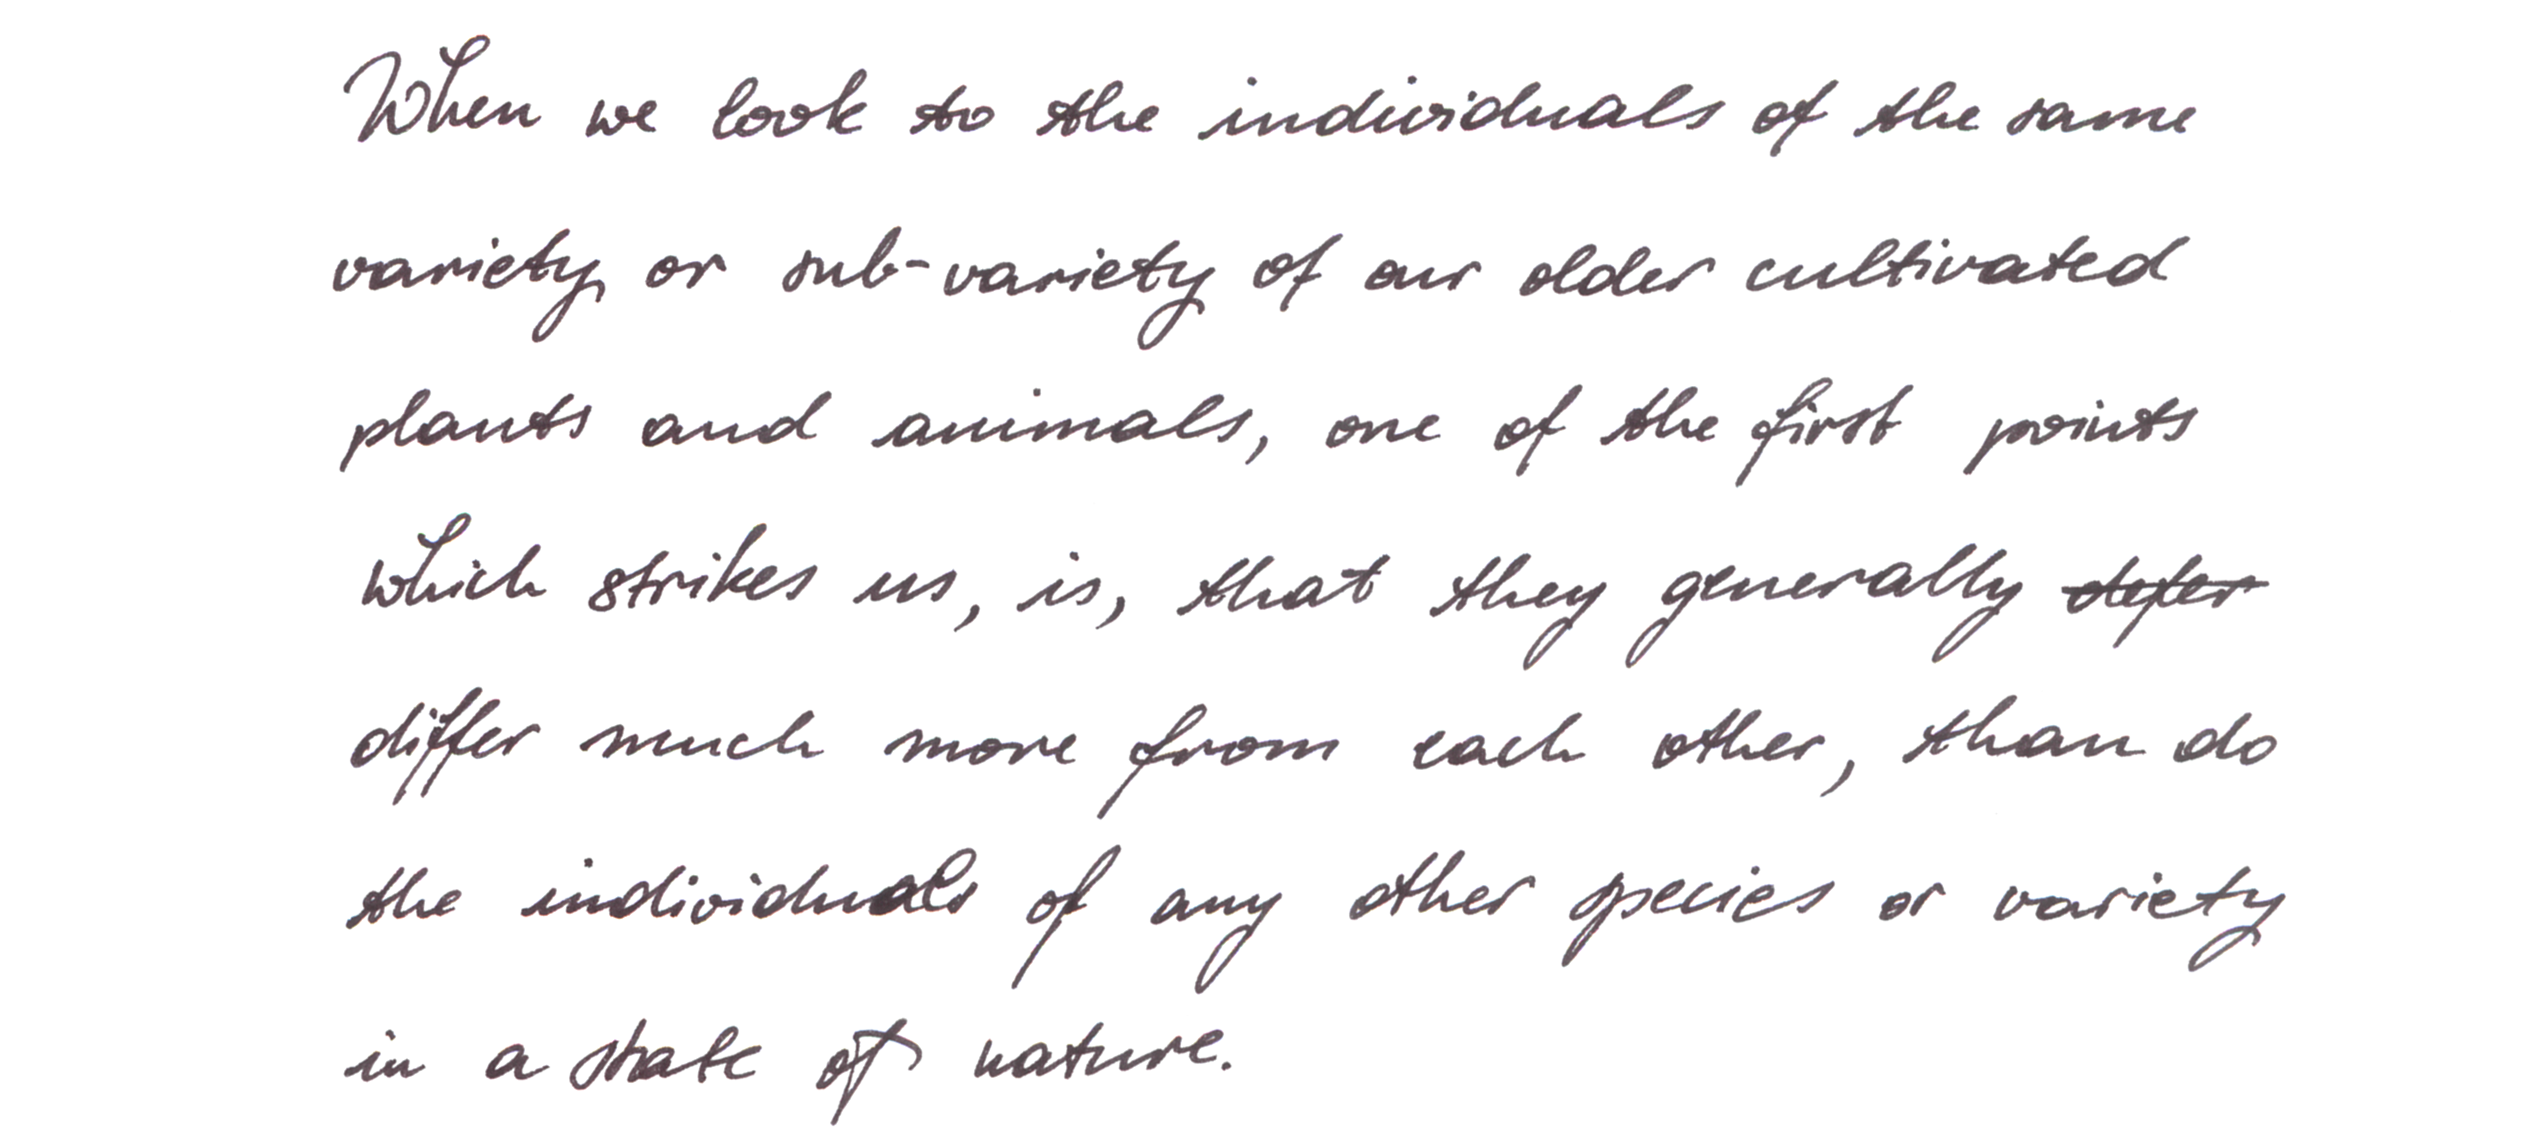 When we look to the individuals of the same
variety or sub-variety of our older cultivated
plants and animals, one of the first points
which strikes us, is, that they generally defer
differ much more from each other, than do
the individuals of any other species or variety
in a state of nature.